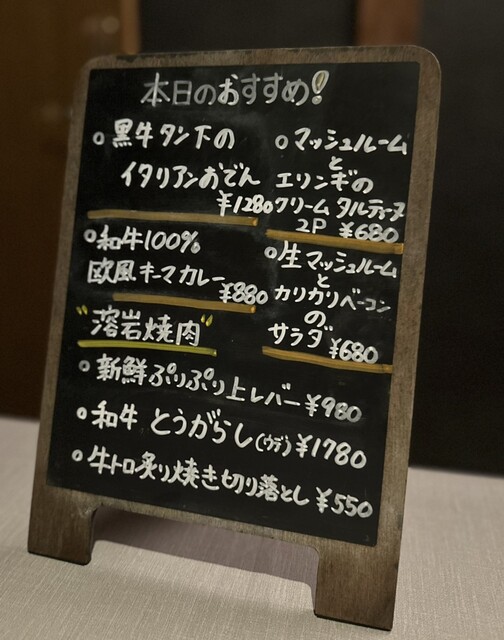 本日のおすすめ!
○黒牛タン下の
イタリアンおでん
¥1280
○和牛100%
欧風キーマカレー
¥880
○マッシュルーム
と
エリンギの
クリームタルティーヌ
2P ¥680
○生マッシュルーム
と
カリカリベーコン
の
サラダ ¥680
"溶岩焼肉"
○新鮮ぷりぷり上レバー ¥980
○和牛 とうがらし(ウデ) ¥1780
○牛トロ炙り焼き切り落とし ¥550